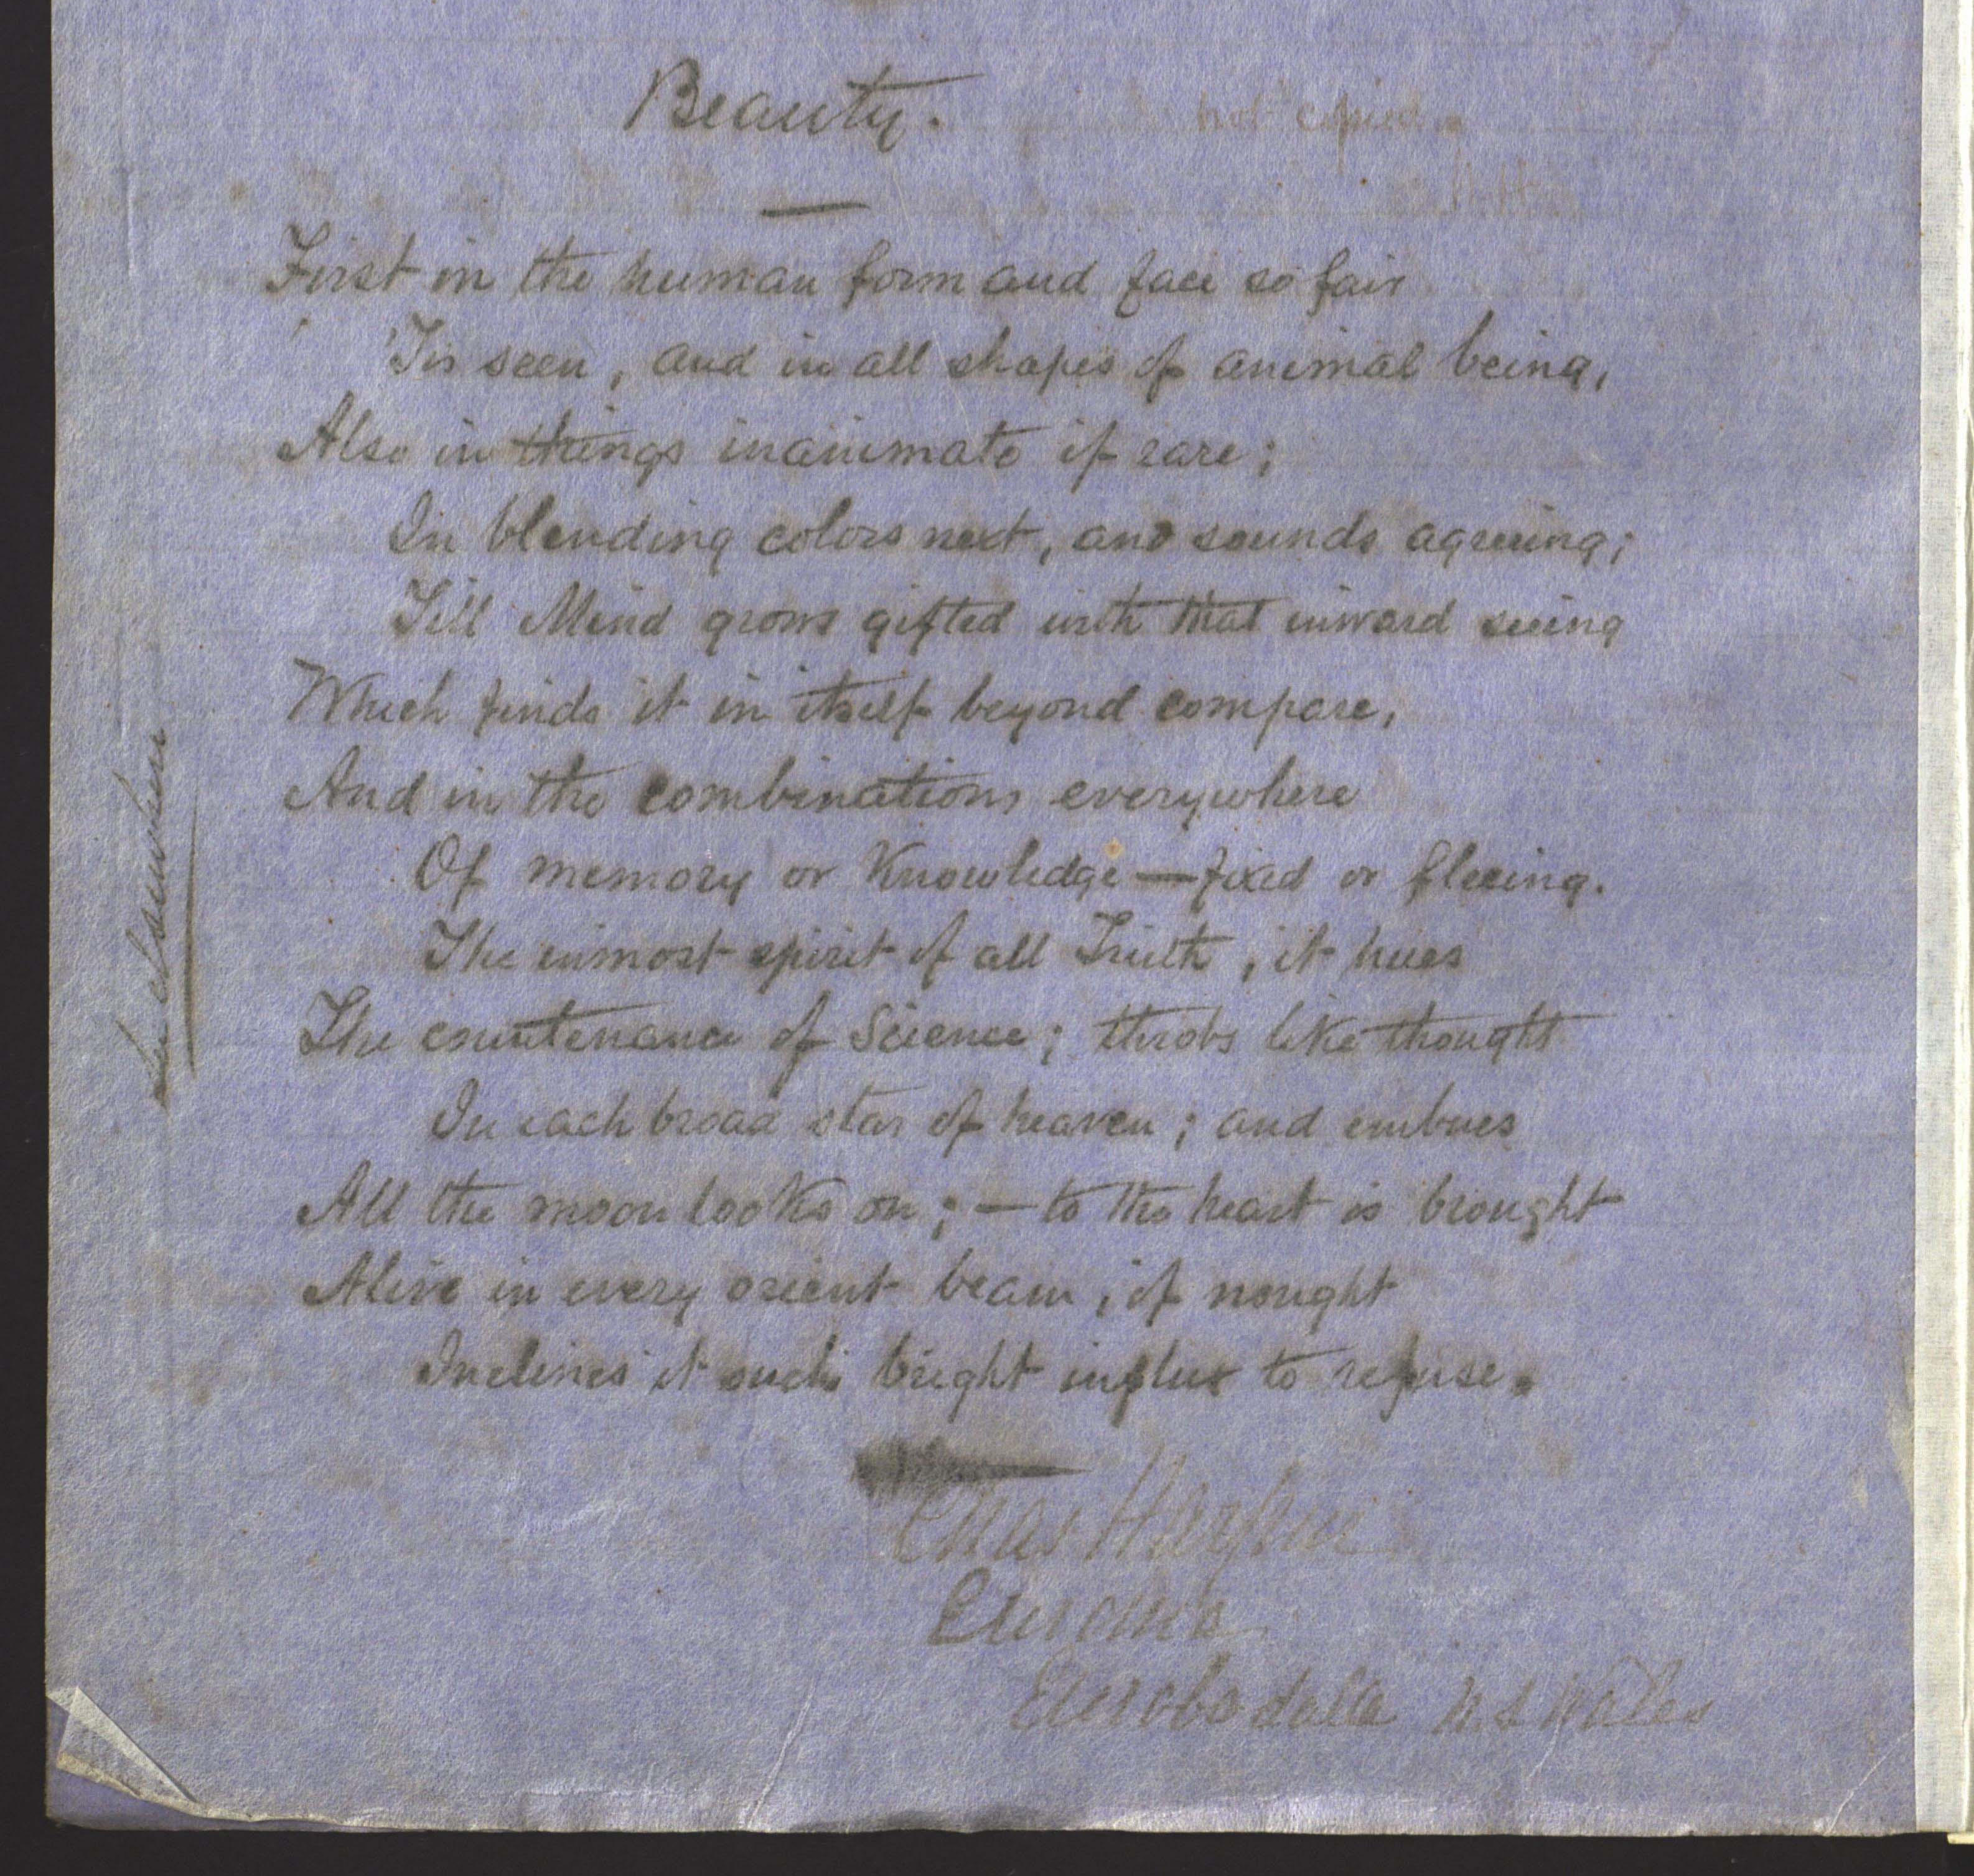 Beauty.
not copied
First in the human form and face so fair
'Tis seen, and in all shapes of animal being,
Also in things inanimate if rare;
In blending colors next, and sounds agreeing;
Till Mind grows gifted with that inward seeing
Which finds it in itself beyond compare,
And in the combinations everywhere
Of memory or Knowledge—fixed or fleeing.
The inmost spirit of all Truth, it hues
The countenance of Science; throbs like thought
In each broad star of heaven; and embues
All the moon looks on;—to the heart is brought
Alive in every orient beam, if nought
Inclines it such bright influx to refuse.
Chas Harpur
Euroma
Eurobodalla N. S Wales
elsewhere